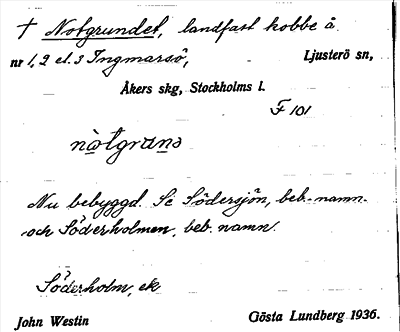 † Notgrundet, landfast kobbe å
nr 1, 2 el. 3 Ingmarsö, Ljusterö sn,
Åkers skg, Stockholms l.
F 101
nòtgrund
Nu bebyggd. Se Södersjön, beb.-namn.
och Söderholmen, beb. namn.
Söderholm, ek
John Westin Gösta Lundberg 1936.